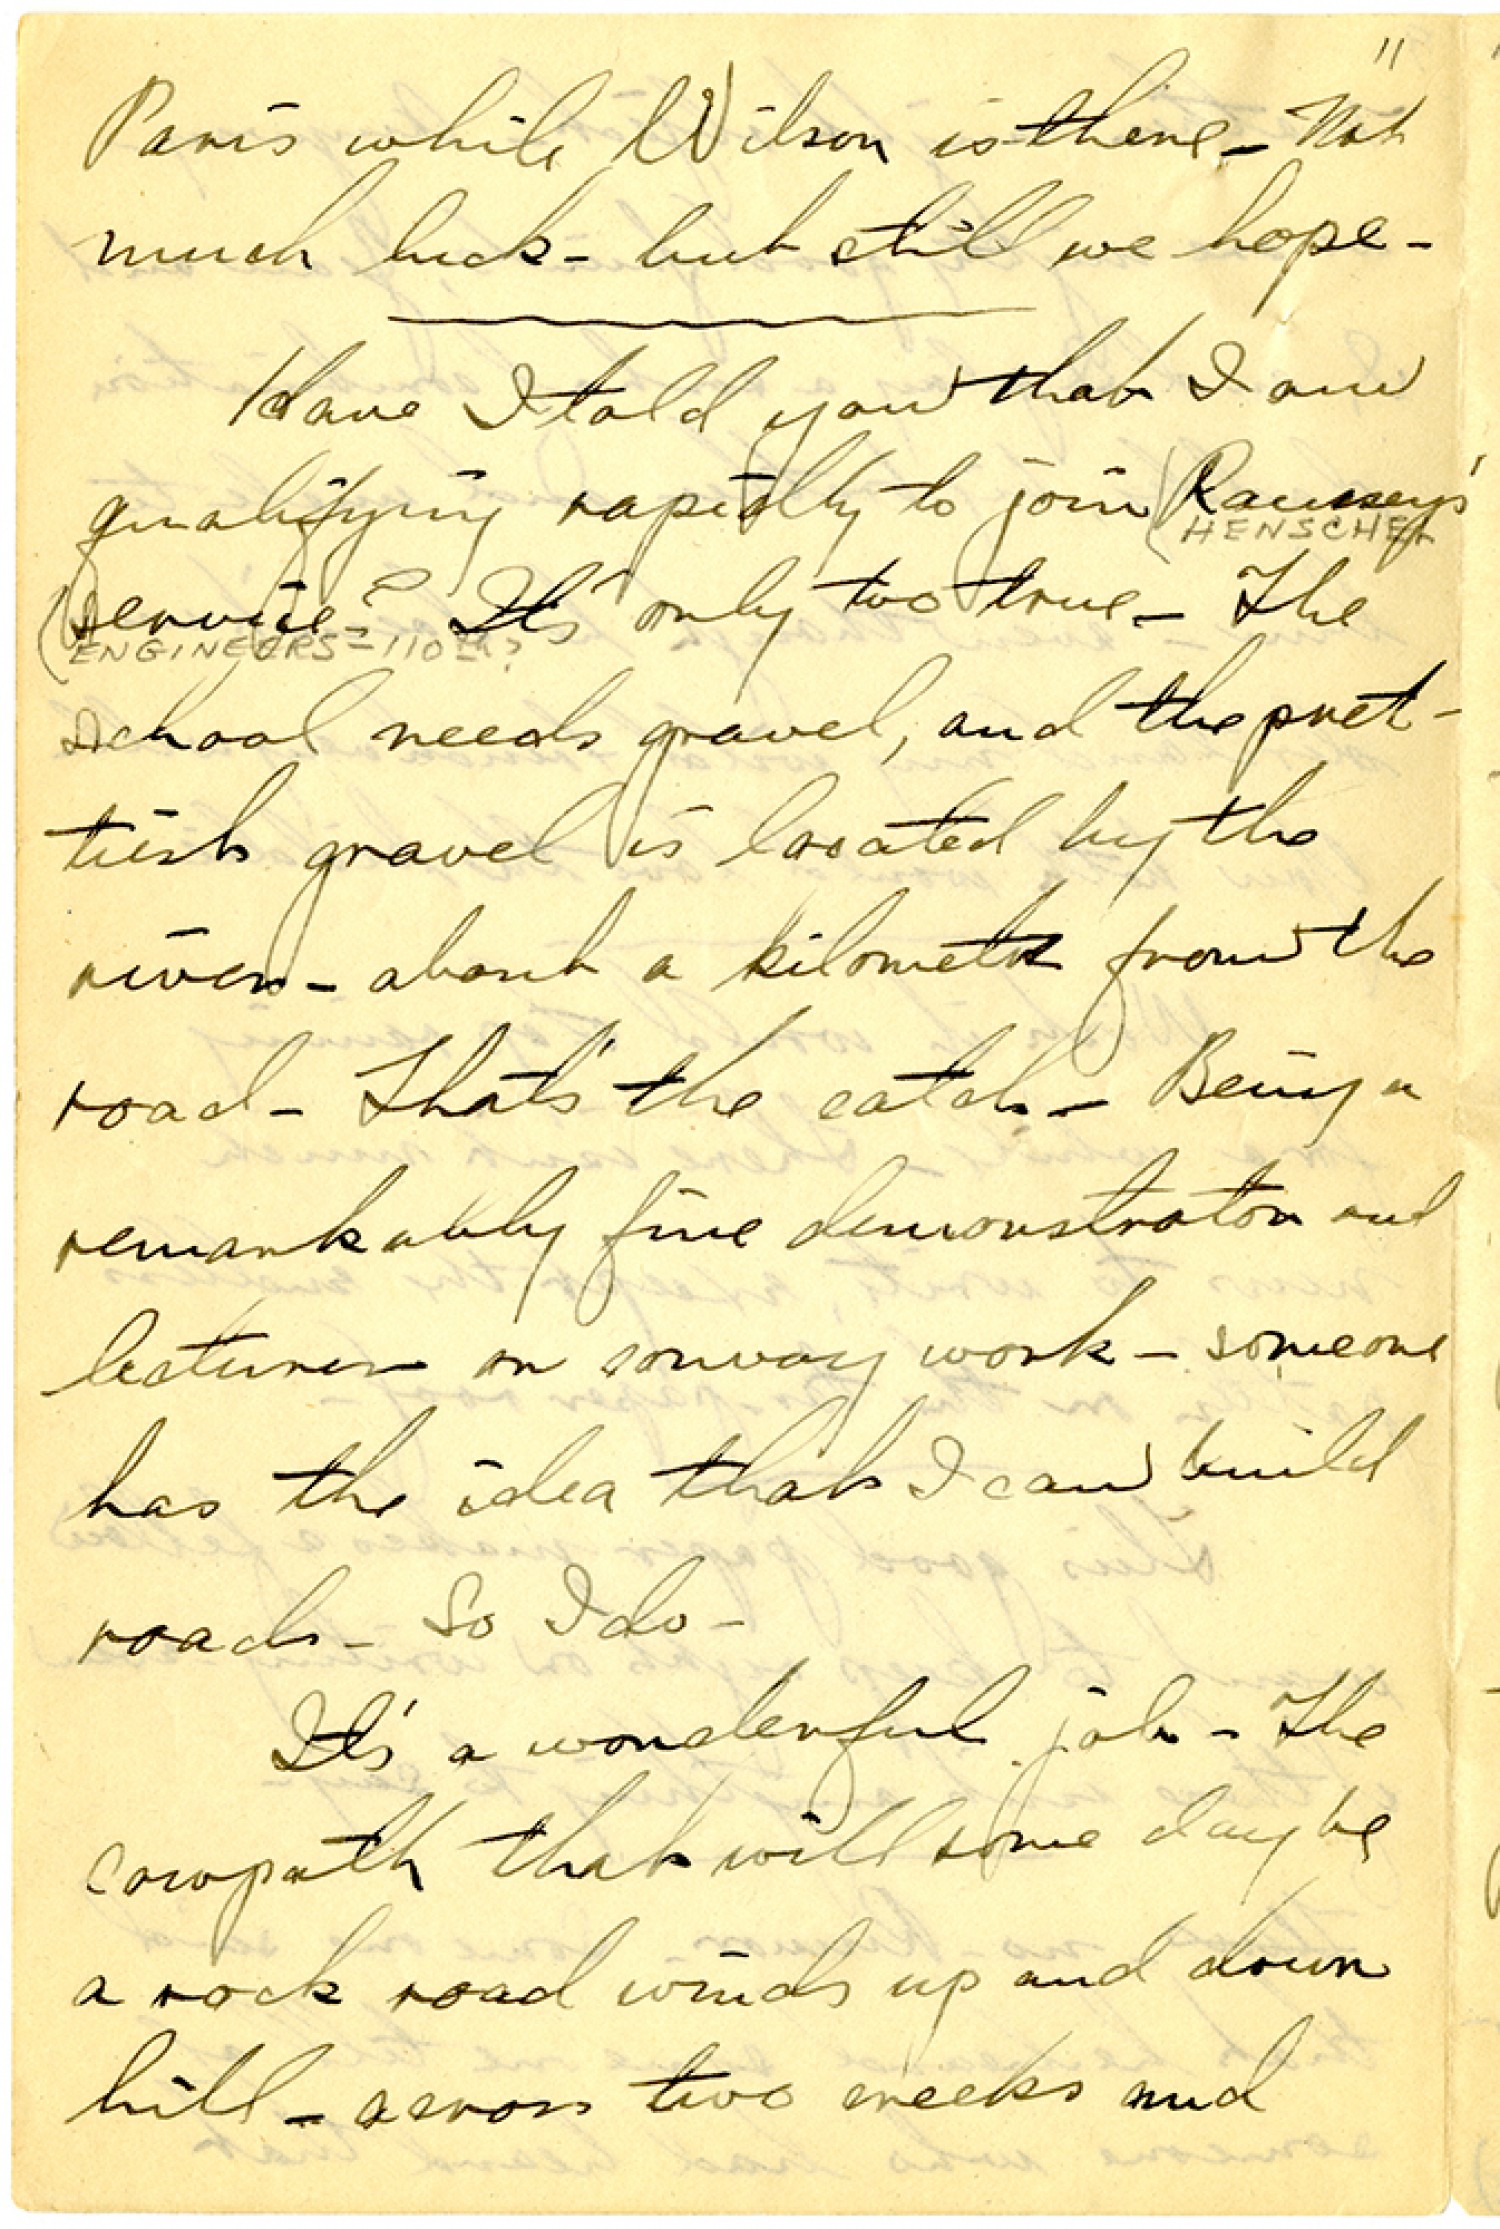 "
Paris while Wilson is there – Not
much luck – but still we hope –
Have I told you that I am
qualifying rapidly to join (Ramsey's
HENSCHEL
(service? It's only too true – The
ENGINEERS – 110th?
school needs gravel, and the pret-
tiest gravel is located by the
river – about a kilometer from the
road – That's the catch – Being a
remarkably fine demonstrator and
lecturer on convoy work – someone
has the idea that I can build
roads – So I do –
It's a wonderful job – The
cowpath that will some day be
a rock road winds up and down
hill – across two creeks and